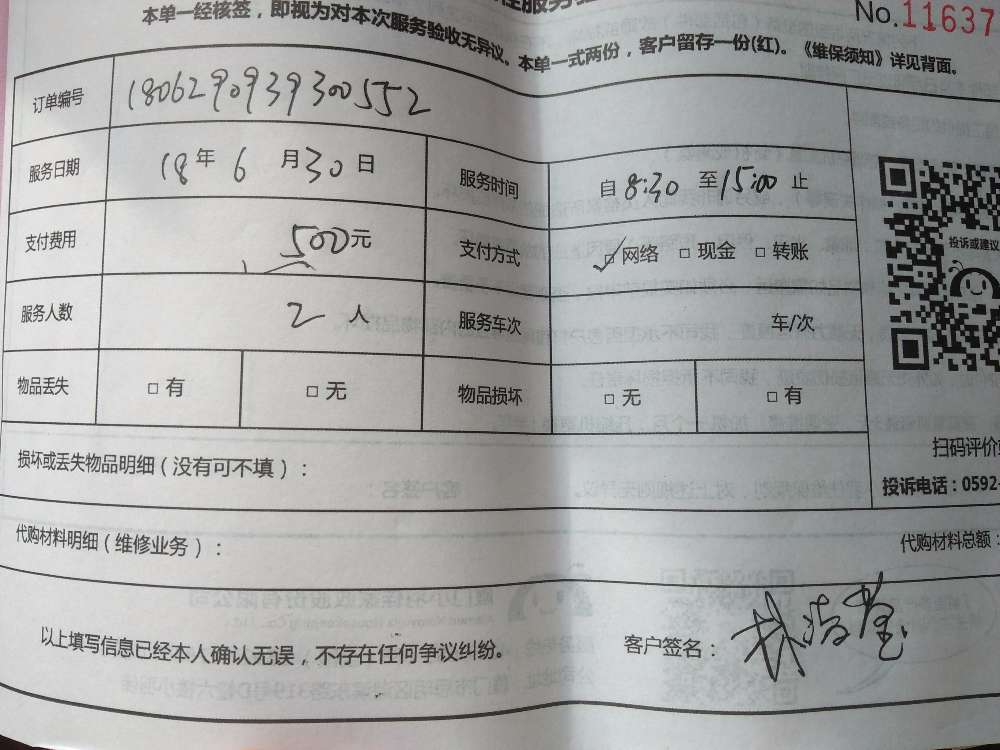 No.11637
本单一经核签，即视为对本次服务验收无异议。本单一式两份，客户留存一份(红)。《维保须知》详见背面。
订单编号 180629093930​0552
服务日期 18年 6 月30日 服务时间 自 8:30 至 15:00 止
支付费用 500元 支付方式 ✓□网络 □现金 □转账
投诉或建议
服务人数 2 人 服务车次 车/次
物品丢失 □有 □无 物品损坏 □无 □有
扫码评价
损坏或丢失物品明细(没有可不填)：
投诉电话：0592-
代购材料明细(维修业务)：
代购材料总额：
以上填写信息已经本人确认无误，不存在任何争议纠纷。 客户签名：